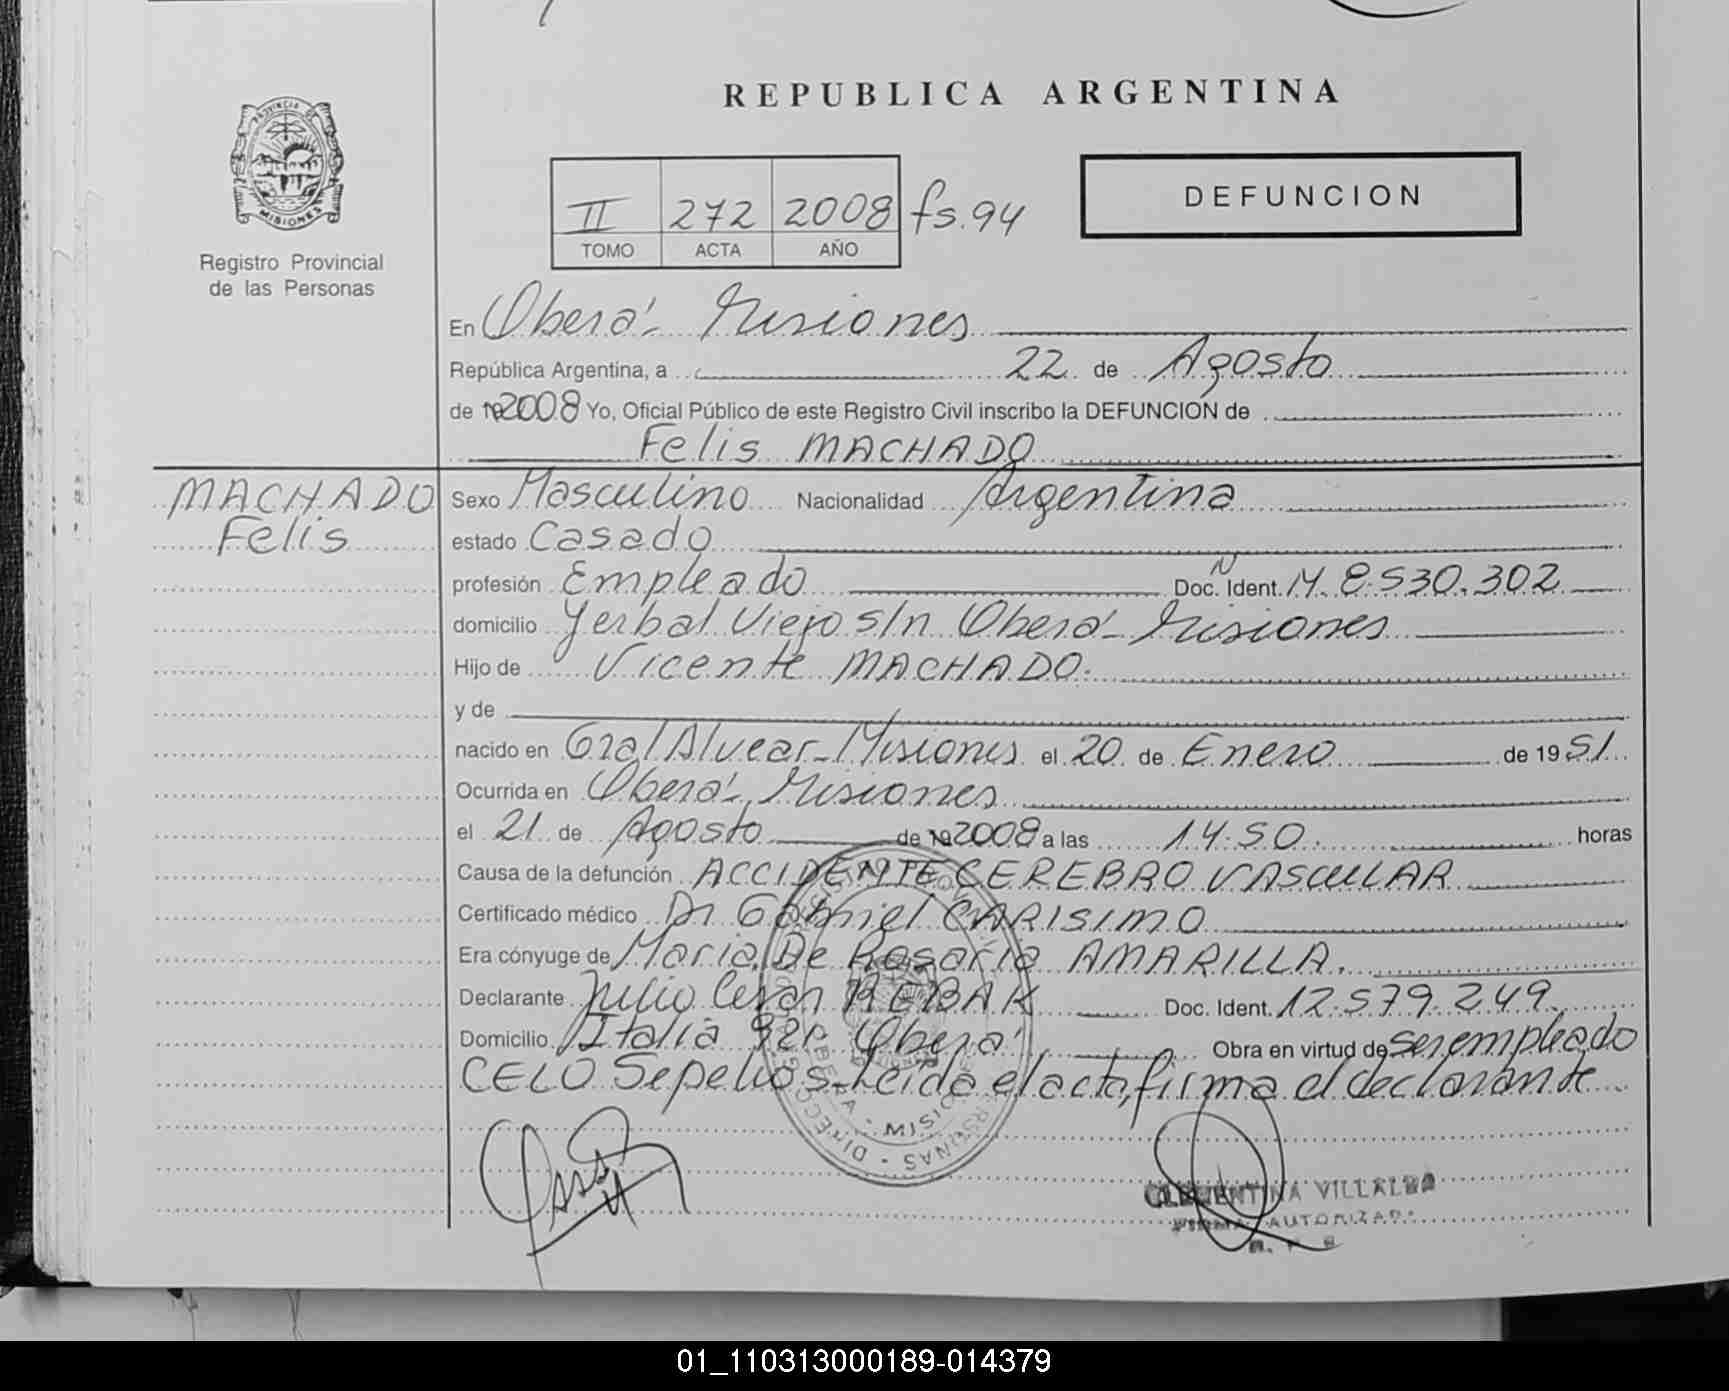 REPUBLICA ARGENTINA
PROVINCIA DE
MISIONES
Registro Provincial
de las Personas
II 272 2008 fs.94
TOMO ACTA AÑO
DEFUNCION
En Oberá - Misiones
República Argentina, a 22 de Agosto
de 2008 Yo, Oficial Público de este Registro Civil inscribo la DEFUNCION de
Felis MACHADO
MACHADO
Felis
Sexo Masculino Nacionalidad Argentina
estado Casado
profesión Empleado Doc. N Ident. M. 8.530.302
domicilio Yerbal Viejo s/n Oberá - Misiones
Hijo de Vicente MACHADO.
y de
nacido en Gral Alvear - Misiones el 20 de Enero de 1951
Ocurrida en Oberá - Misiones
el 21 de Agosto de 2008 a las 14.50. horas
Causa de la defunción ACCIDENTE CEREBRO VASCULAR
Certificado médico Dr Gabriel CARISIMO
Era cónyuge de Maria De Rosario AMARILLA.
Declarante Julio Cesar Doc. Ident. 12.579.249.
Domicilio Italia Oberá Obra en virtud de ser empleado
CELO Sepelios - Leida el acta, firma el declarante
CLEMENTINA VILLALBA
FIRMA AUTORIZADA
01_110313000189-014379